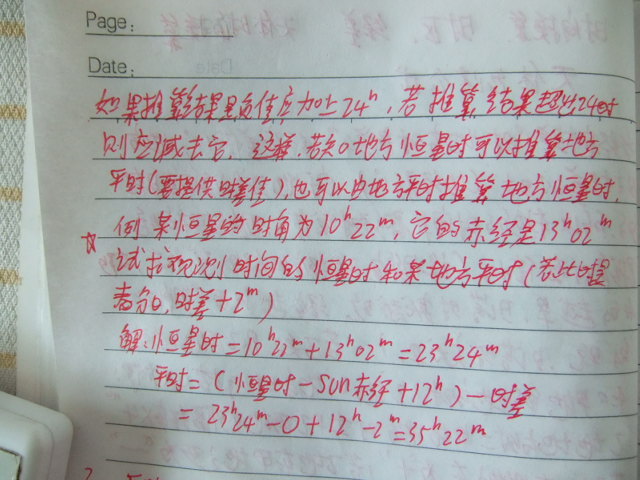 Page:
Date:
如果推算结果是负值应加上24ʰ,若推算结果超出24时
则应减去它.这样.若知地方恒星时可以推算地方
平时(要提供时差值),也可以由地方平时推算地方恒星时.
例 某恒星的时角为10ʰ22ᵐ,它的赤经是13ʰ02ᵐ
☆ 试求观测时间的恒星时和某地方平时(若此时是
春分,时差+2ᵐ)
解:恒星时=10ʰ22ᵐ+13ʰ02ᵐ=23ʰ24ᵐ
平时=(恒星时-sun赤经+12ʰ)-时差
=23ʰ24ᵐ-0+12ʰ-2ᵐ=35ʰ22ᵐ